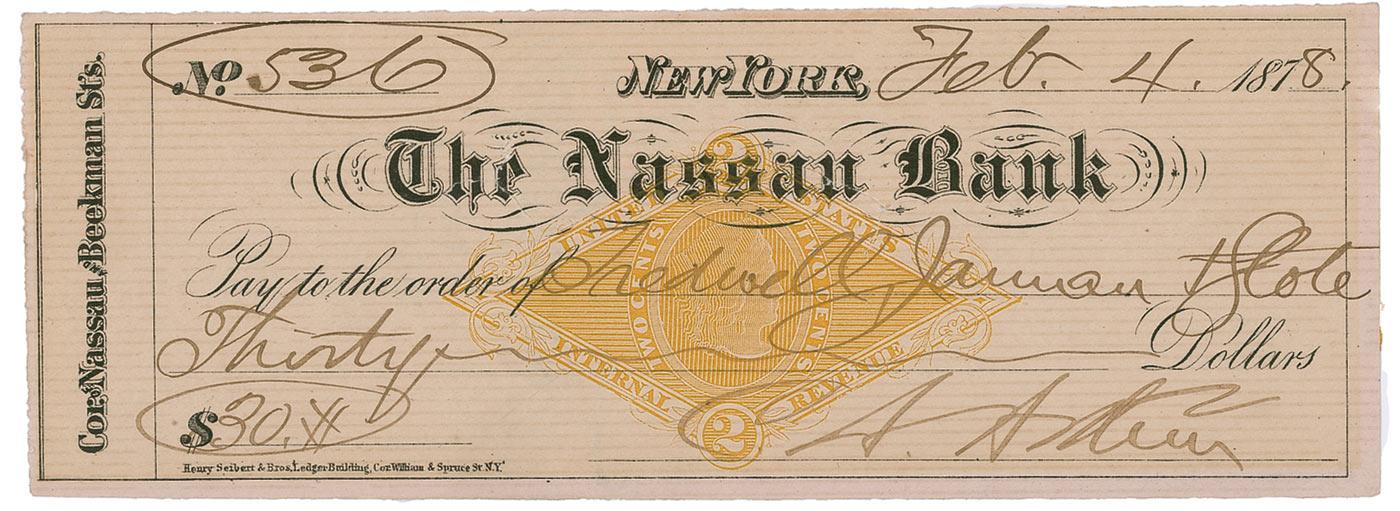 No. 536
NEW YORK, Feb. 4. 1878.
The Nassau Bank
Cor. Nassau & Beekman Sts.
Pay to the order of Tredwell, Jarman & Slote
Thirty Dollars
$30.
Henry Seibert & Bros. Ledger Building, Cor. William & Spruce St. N.Y.
2
UNITED STATES
TWO CENTS TWO CENTS
INTERNAL REVENUE
2